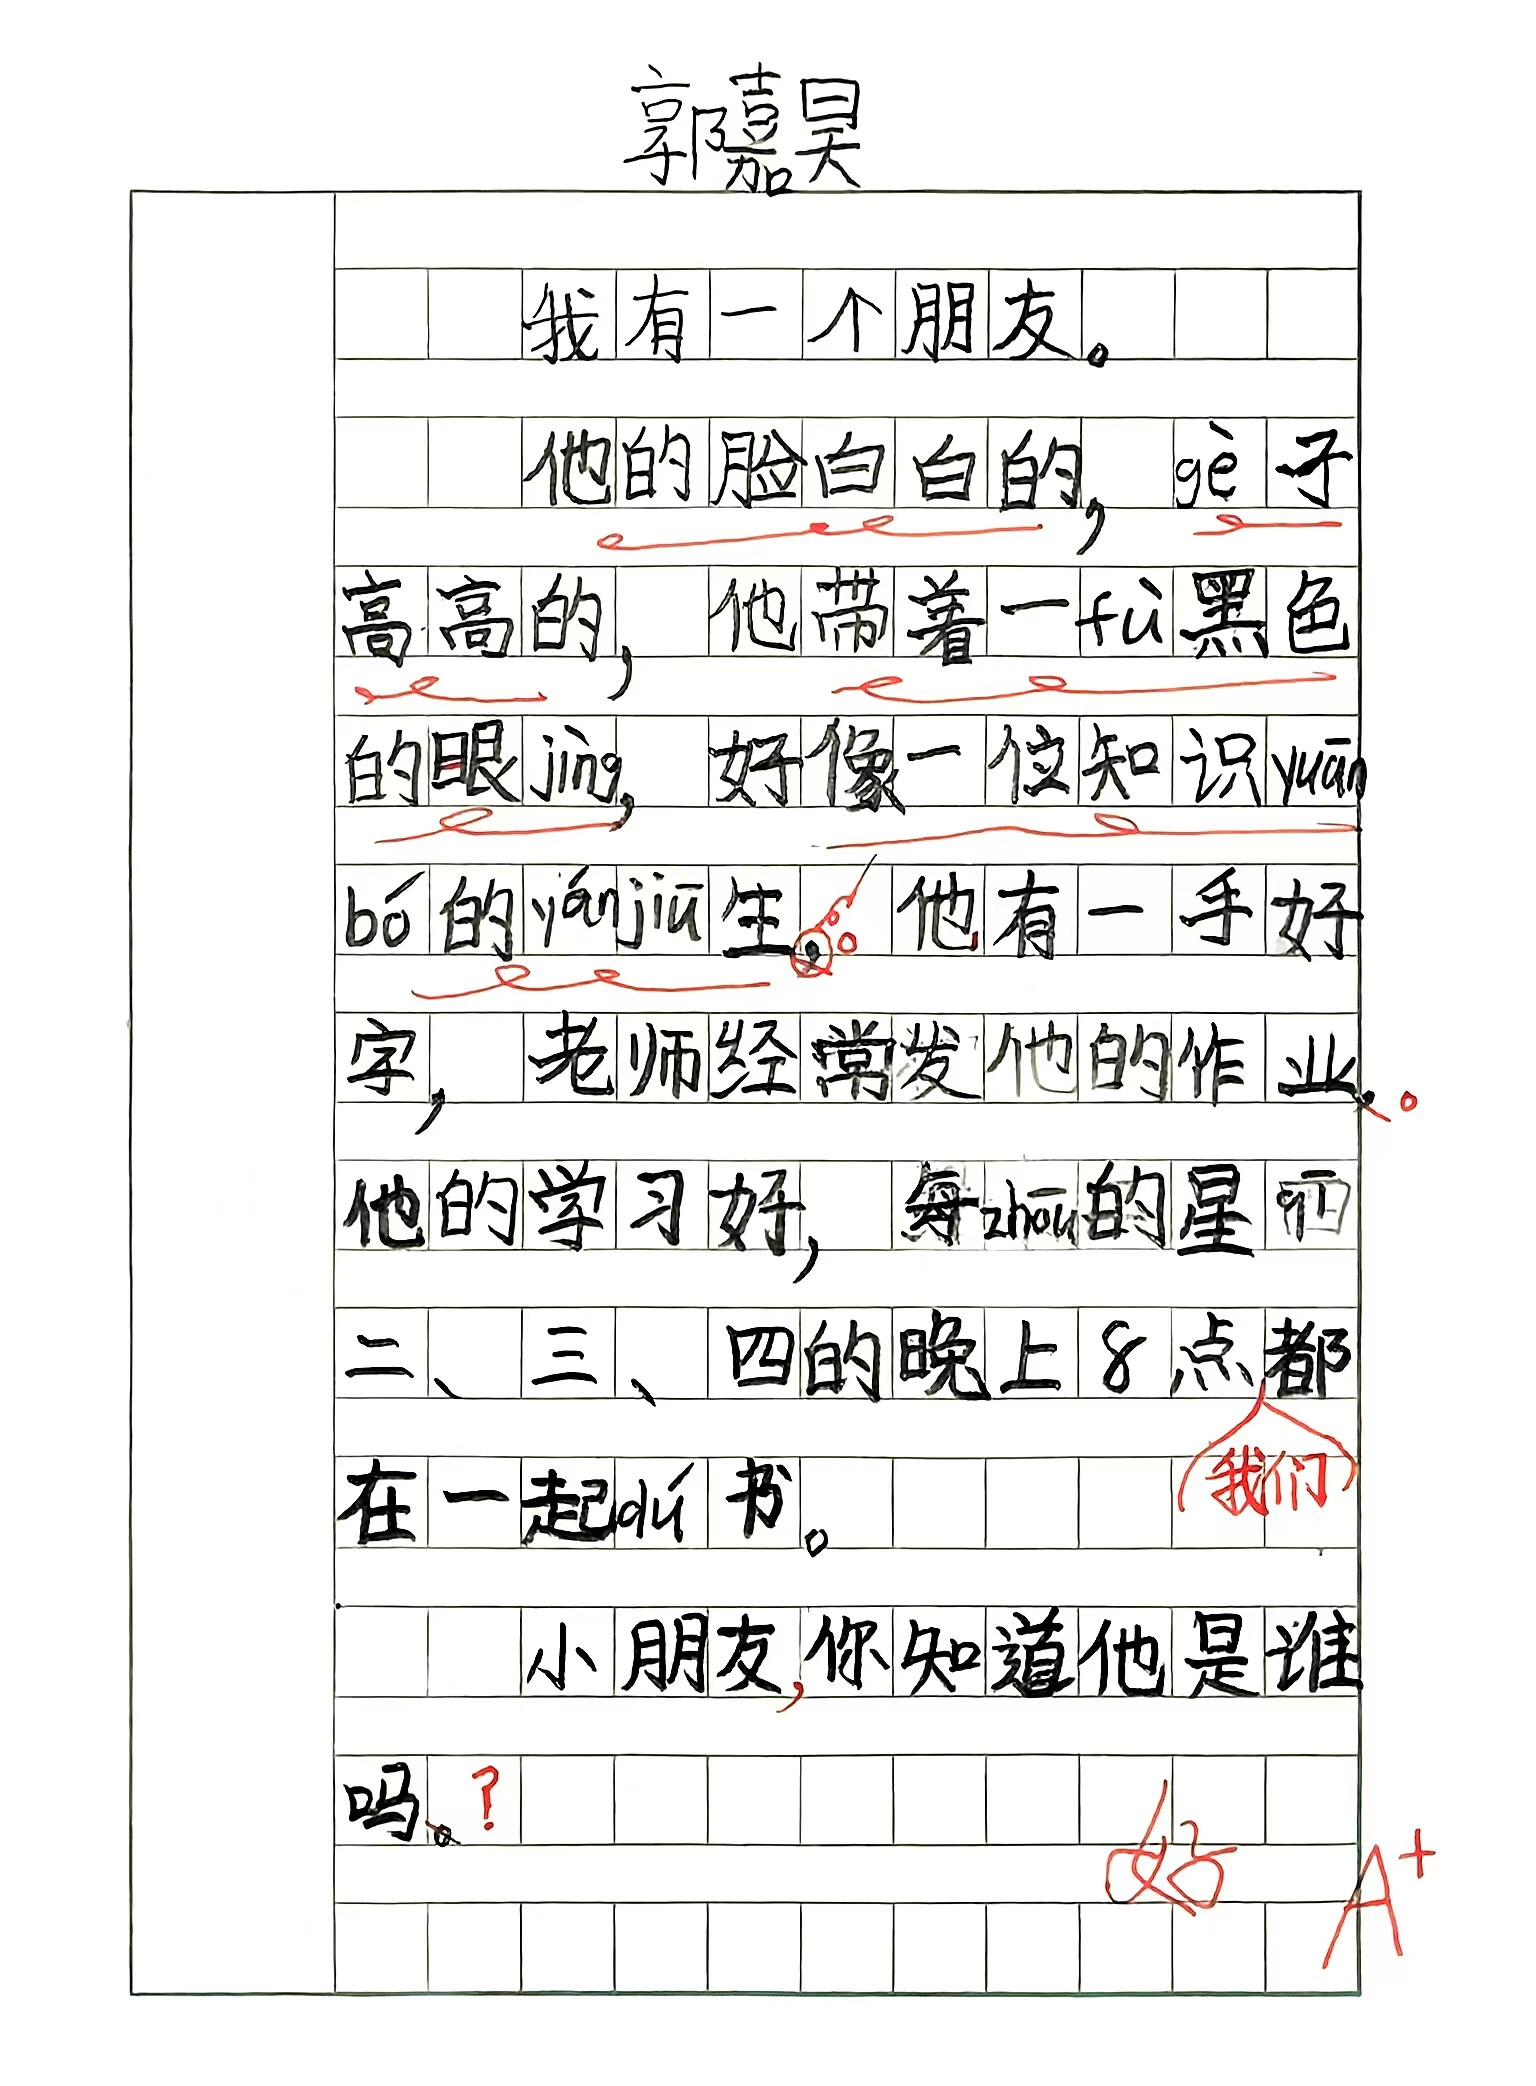 郭嘉昊
我有一个朋友。
他的脸白白的，gè子
高高的，他带着一fù黑色
的眼jìng，好像一位知识yuān
bó的yánjiū生，。他有一手好
字，老师经常发他的作业，。
他的学习好，每zhōu的星
二、三、四的晚上8点都
我们
在一起dú书。
小朋友，你知道他是谁
吗。？
好
A+